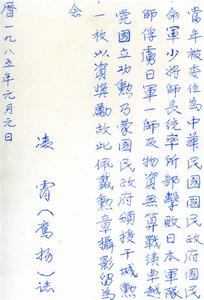 當年被委任為中華民國國民政府國民
命軍少將師長統率所部擊敗日本軍隊
師俘虜日軍一師及物資無算戰績卓越
党國立功勳乃蒙國民政府頒授干城勲
一枚以資獎勵故此佩戴勲章攝影留為
念
凌霄(鷹揚)誌
曆一九八五年元月元日